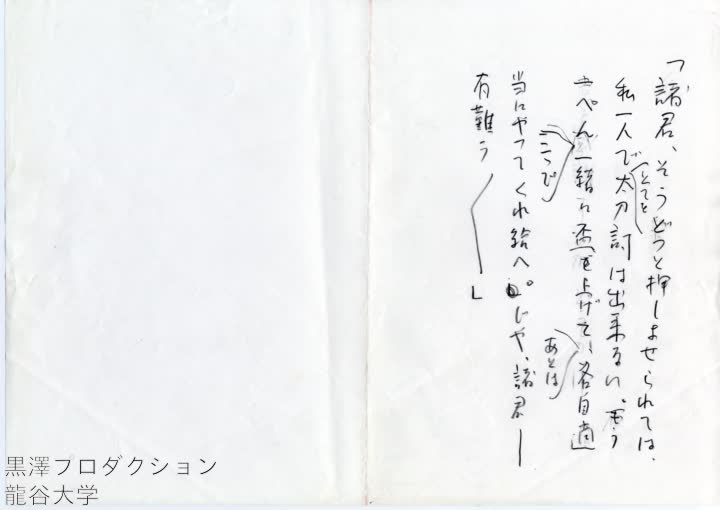 「諸君、そうどつと押しよせられては、
私一人で太刀討は出来ない、もう
とても
一ぺん一緒に盃を上げて、各自適
こつび
あとは
当にやつてくれ給へ。じや、諸君―
有難う―」
黒澤プロダクション
龍谷大学